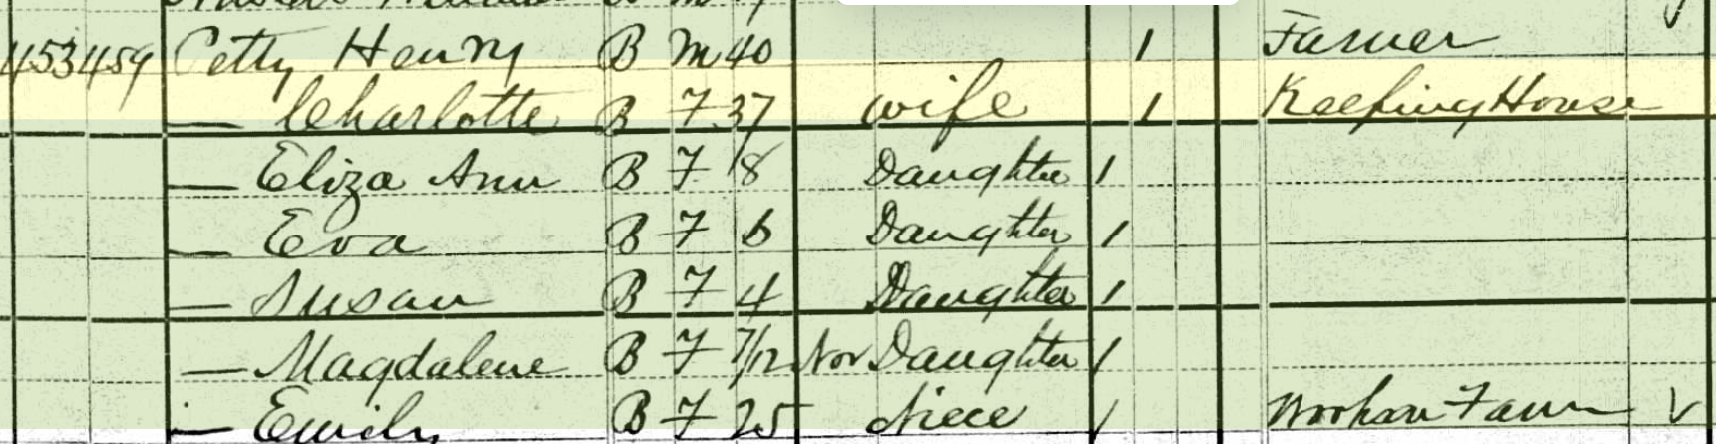 453 459 Petty Henry B M 40 1 Farmer
— Charlotte B F 37 wife 1 Keeping House
— Eliza Ann B F 8 Daughter 1
— Eva B F 6 Daughter 1
— Susan B F 4 Daughter 1
— Magdalene B F 7/12 Nov Daughter 1
— Emily B F 25 Niece 1 Farm